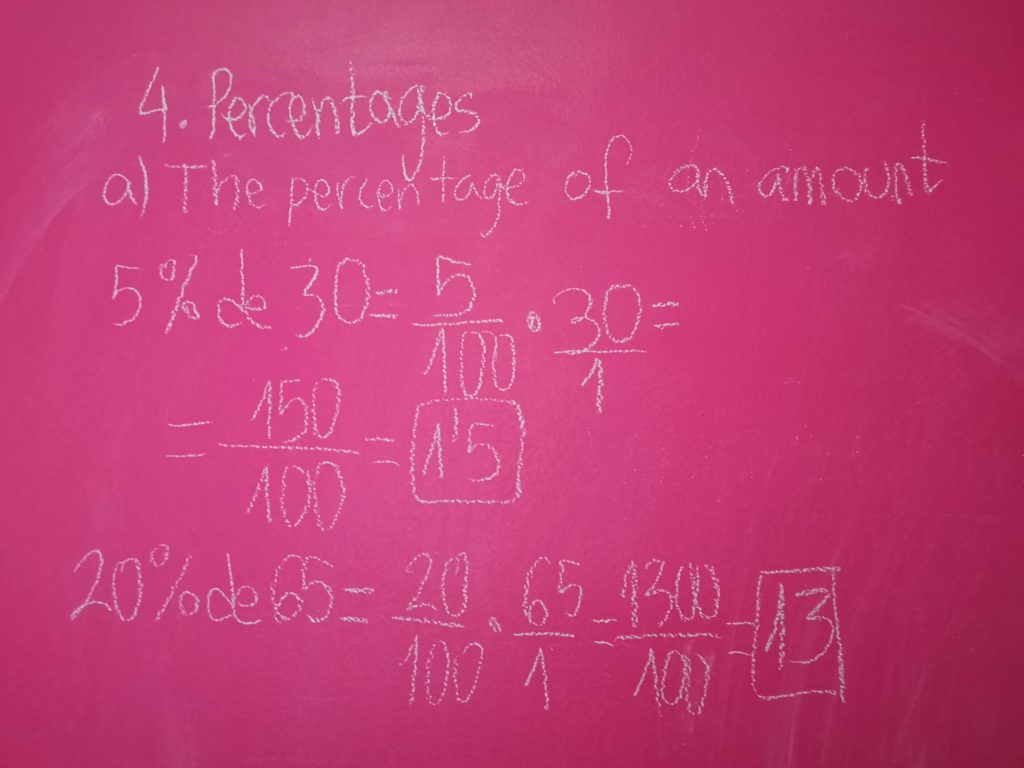 4. Percentages
a) The percentage of an amount
5% de 30 = 5/100 · 30/1 =
= 150/100 = 1'5
20% de 65 = 20/100 · 65/1 = 1300/100 = 13